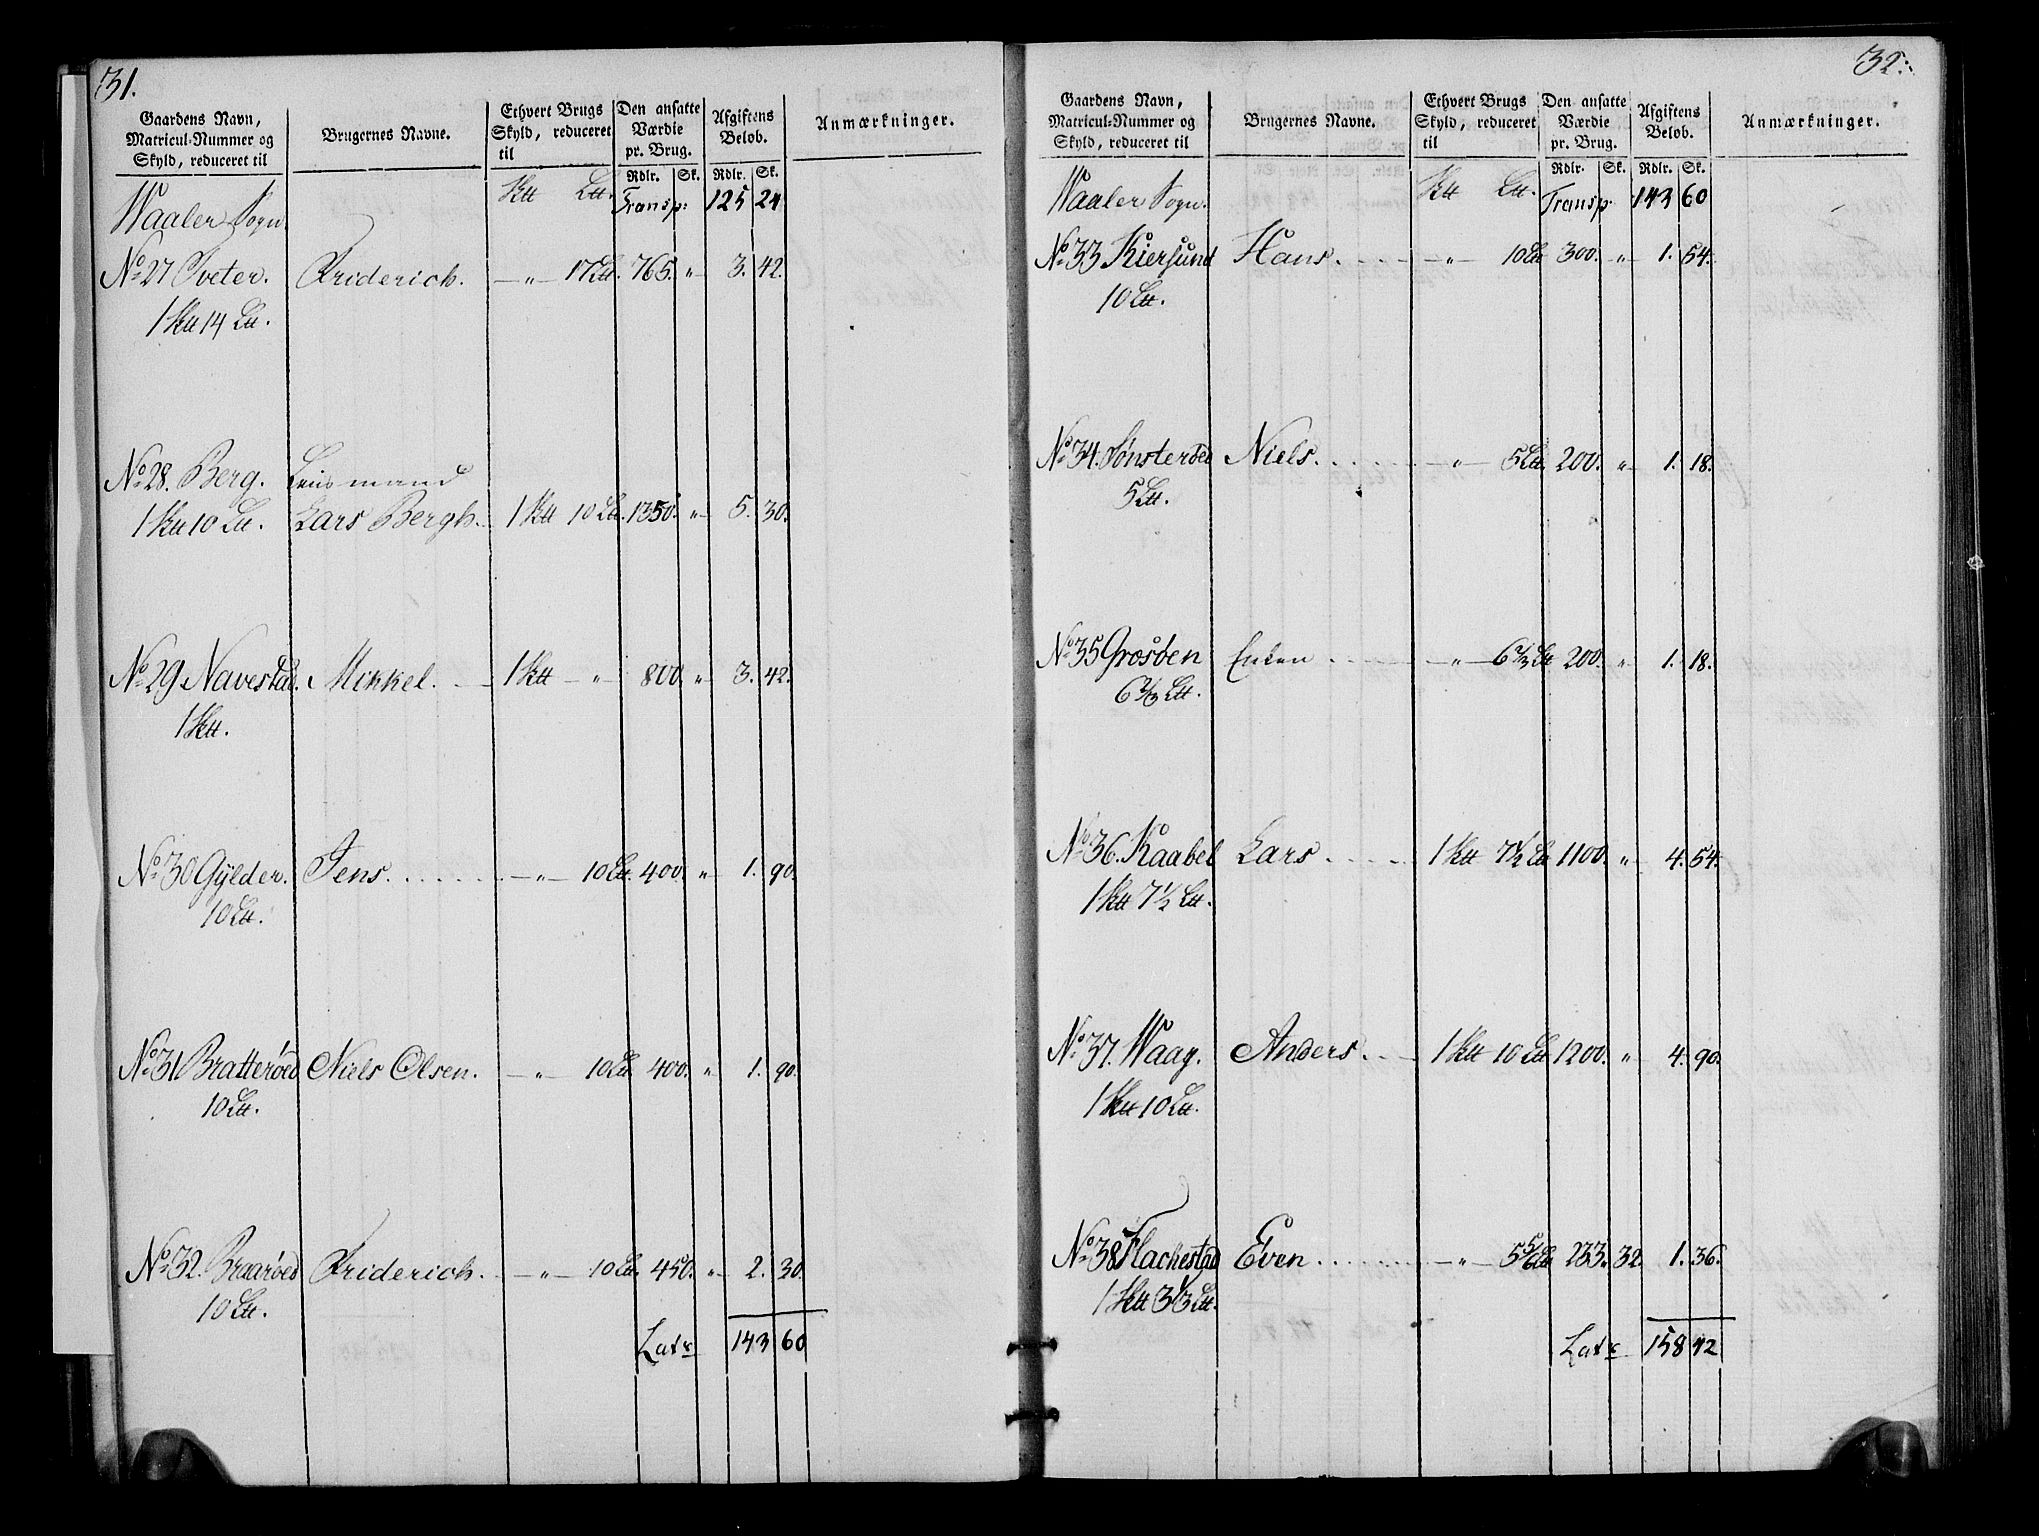 31.
Gaardens Navn, Matricul-Nummer og Skyld, reduceret til | Brugernes Navne. | Ethvert Brugs Skyld, reduceret til | Den ansatte Værdie pr. Brug. | Afgiftens Beløb. | Anmærkninger.
Rdlr. Sk. Rdlr. Sk.
Waaler Sogn. Sk℔ L℔. Transp: 125 24
No 27 Sveter. Friderich. — „ — 17 L℔. 765. „ 3. 42.
1 Sk℔ 14 L℔.
No 28. Berg. Lensmand
1 Sk℔ 10 L℔. Lars Bergh. 1 Sk℔ 10 L℔. 1350. „ 5. 30.
No 29 Navestad. Mikkel. 1 Sk℔ — „ 800. „ 3. 42.
1 Sk℔.
No 30 Gÿlder. Jens. — „ — 10 L℔. 400. „ 1. 90.
10 L℔.
No 31 Bratterøed Niels Olsen. — „ — 10 L℔. 400. „ 1. 90.
10 L℔.
No 32. Braarøed Friderich. — „ — 10 L℔. 450. „ 2. 30.
10 L℔.
Lat. 143 60
32.
Gaardens Navn, Matricul-Nummer og Skyld, reduceret til | Brugernes Navne. | Ethvert Brugs Skyld, reduceret til | Den ansatte Værdie pr. Brug. | Afgiftens Beløb. | Anmærkninger.
Rdlr. Sk. Rdlr. Sk.
Waaler Sogn. Sk℔ L℔. Transp. 143 60
No 33 Kiersund Hans. — „ — 10 L℔ 300. „ 1. 54.
10 L℔.
No 34. Sønsterød Niels. — „ — 5 L℔. 200. „ 1. 18.
5 L℔.
No 35 Grosøen Enken — „ — 6 2/3 L℔ 200. „ 1. 18.
6 2/3 L℔.
No 36. Kaabel Lars. 1 Sk℔ 7 1/2 L℔ 1100. „ 4. 54.
1 Sk℔ 7 1/2 L℔.
No 37. Waag. Anders. 1 Sk℔ 10 L℔ 1200. „ 4. 90.
1 Sk℔ 10 L℔.
No 38 Flackestad Even — „ — 5 5/6 L℔ 233. 32. 1. 36.
1 Sk℔ 3 1/3 L℔.
Lat. 158 42